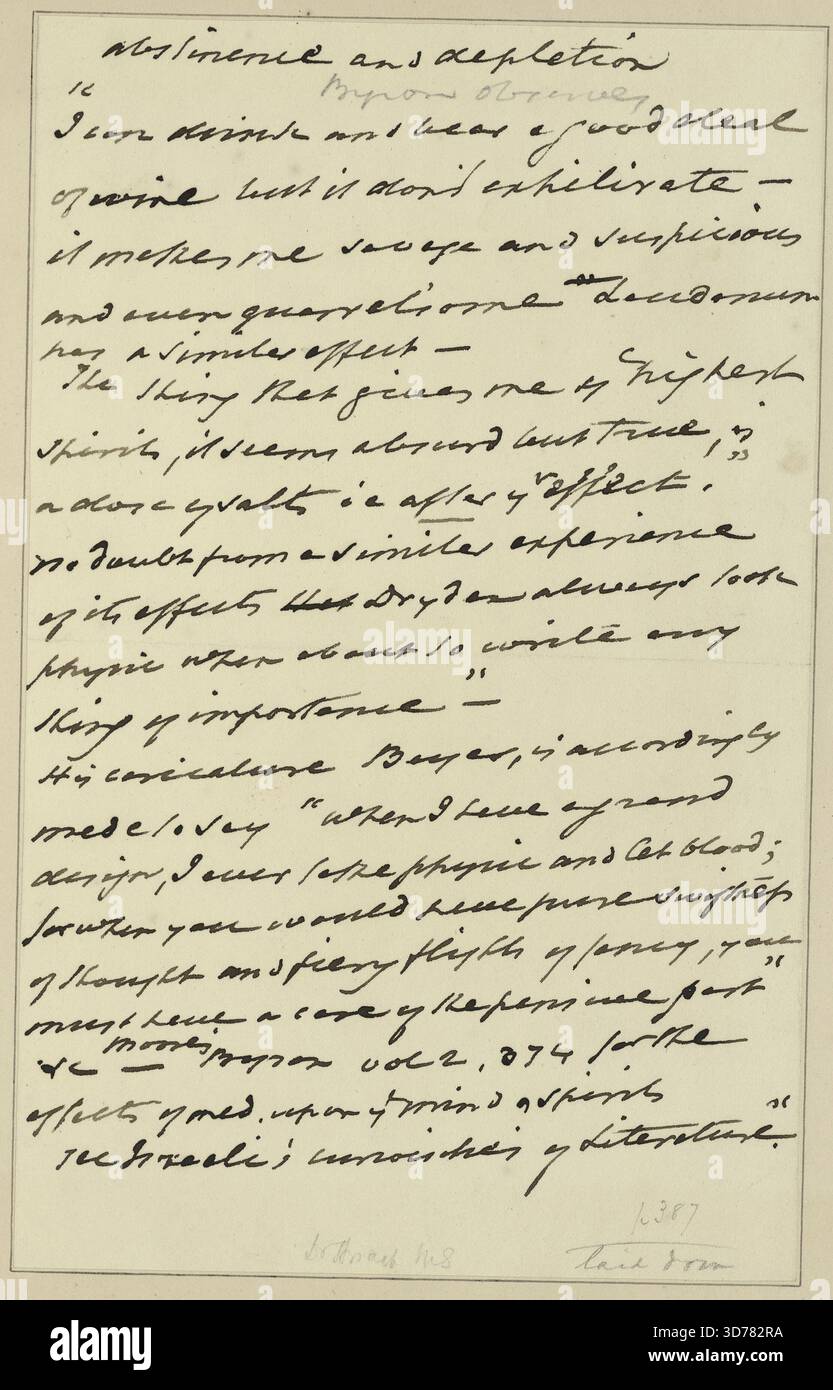 abstinence and depletion
Byron observes
"I can drink and bear a good deal
of wine but it don't exhilirate —
it makes me savage and suspicious
and even quarrelsome Laudanum
has a similar effect —
The thing that gives me yᵉ highest
spirits, it seems absurd but true, is
a dose of salts i e after yʳ effect."
no doubt from a similar experience
of its effects Dryden always took
physic when about to write any
thing of importance" —
His caricature Bayes, is accordingly
made to say "when I have a grand
design, I ever take physic and let blood;
for when you would have pure swiftness
of thought and fiery flights of fancy, you
must have a care of the pensive part"
&c — Moore's Byron vol 2. 374 for the
effects of med. upon yᵉ mind & spirits
see Israeli's curiosities of Literature."
p387
MS
laid down
alamy
Image ID: 3D782RA
www.alamy.com